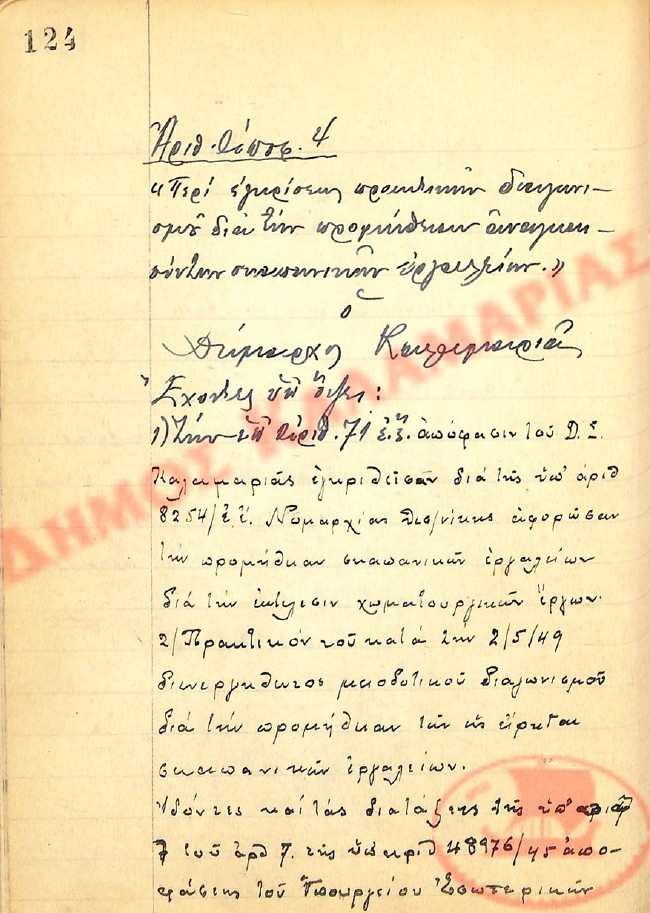 124
Ἀριθ. Ἀποφ. 4
«Περί ἐγκρίσεως πρακτικῶν διαγωνι-
σμοῦ διά τήν προμήθειαν ἀναγκαι-
ούντων σκαπανικῶν ἐργαλείων.»
Ὁ
Δήμαρχος Καλαμαριᾶς
Ἔχοντες ὑπ' ὄψει:
1) Τήν ὑπ' ἀριθ. 71 ἐ.ἔ. ἀπόφασιν τοῦ Δ.Σ.
Καλαμαριᾶς ἐγκριθεῖσαν διά τῆς ὑπ' ἀριθ
8254/ἐ.ἔ. Νομαρχίας Θεσ/νίκης ἀφορῶσαν
τήν προμήθειαν σκαπανικῶν ἐργαλείων
διά τήν ἐκτέλεσιν χωματουργικῶν ἔργων.
2/ Πρακτικόν τοῦ κατά τήν 2/5/49
διενεργηθέντος μειοδοτικοῦ διαγωνισμοῦ
διά τήν προμήθειαν τῶν ὡς εἴρηται
σκαπανικῶν ἐργαλείων.
Ἰδόντες καί τάς διατάξεις τῆς ὑπ'
τοῦ ἀρθ 7. τῆς ὑπ' ἀριθ 48976/45 ἀπο-
φάσεως τοῦ Ὑπουργείου Ἐσωτερικῶν
ΔΗΜΟΣ ΚΑΛΑΜΑΡΙΑΣ